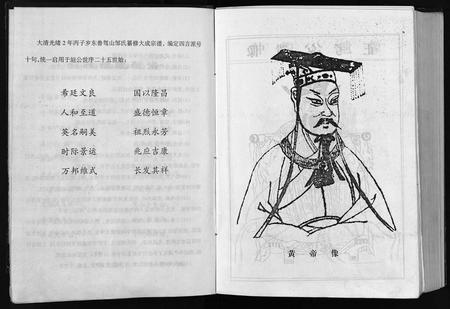 大清光绪2年丙子岁东鲁驾山邹氏纂修大成宗谱，编定四言派号
十句，统一启用于庭公世序二十五世始：
希廷文良 国以隆昌
人和至道 盛德恒章
英名嗣美 祖烈永芳
时际景运 兆应吉康
万邦维式 长发其祥
黄帝像